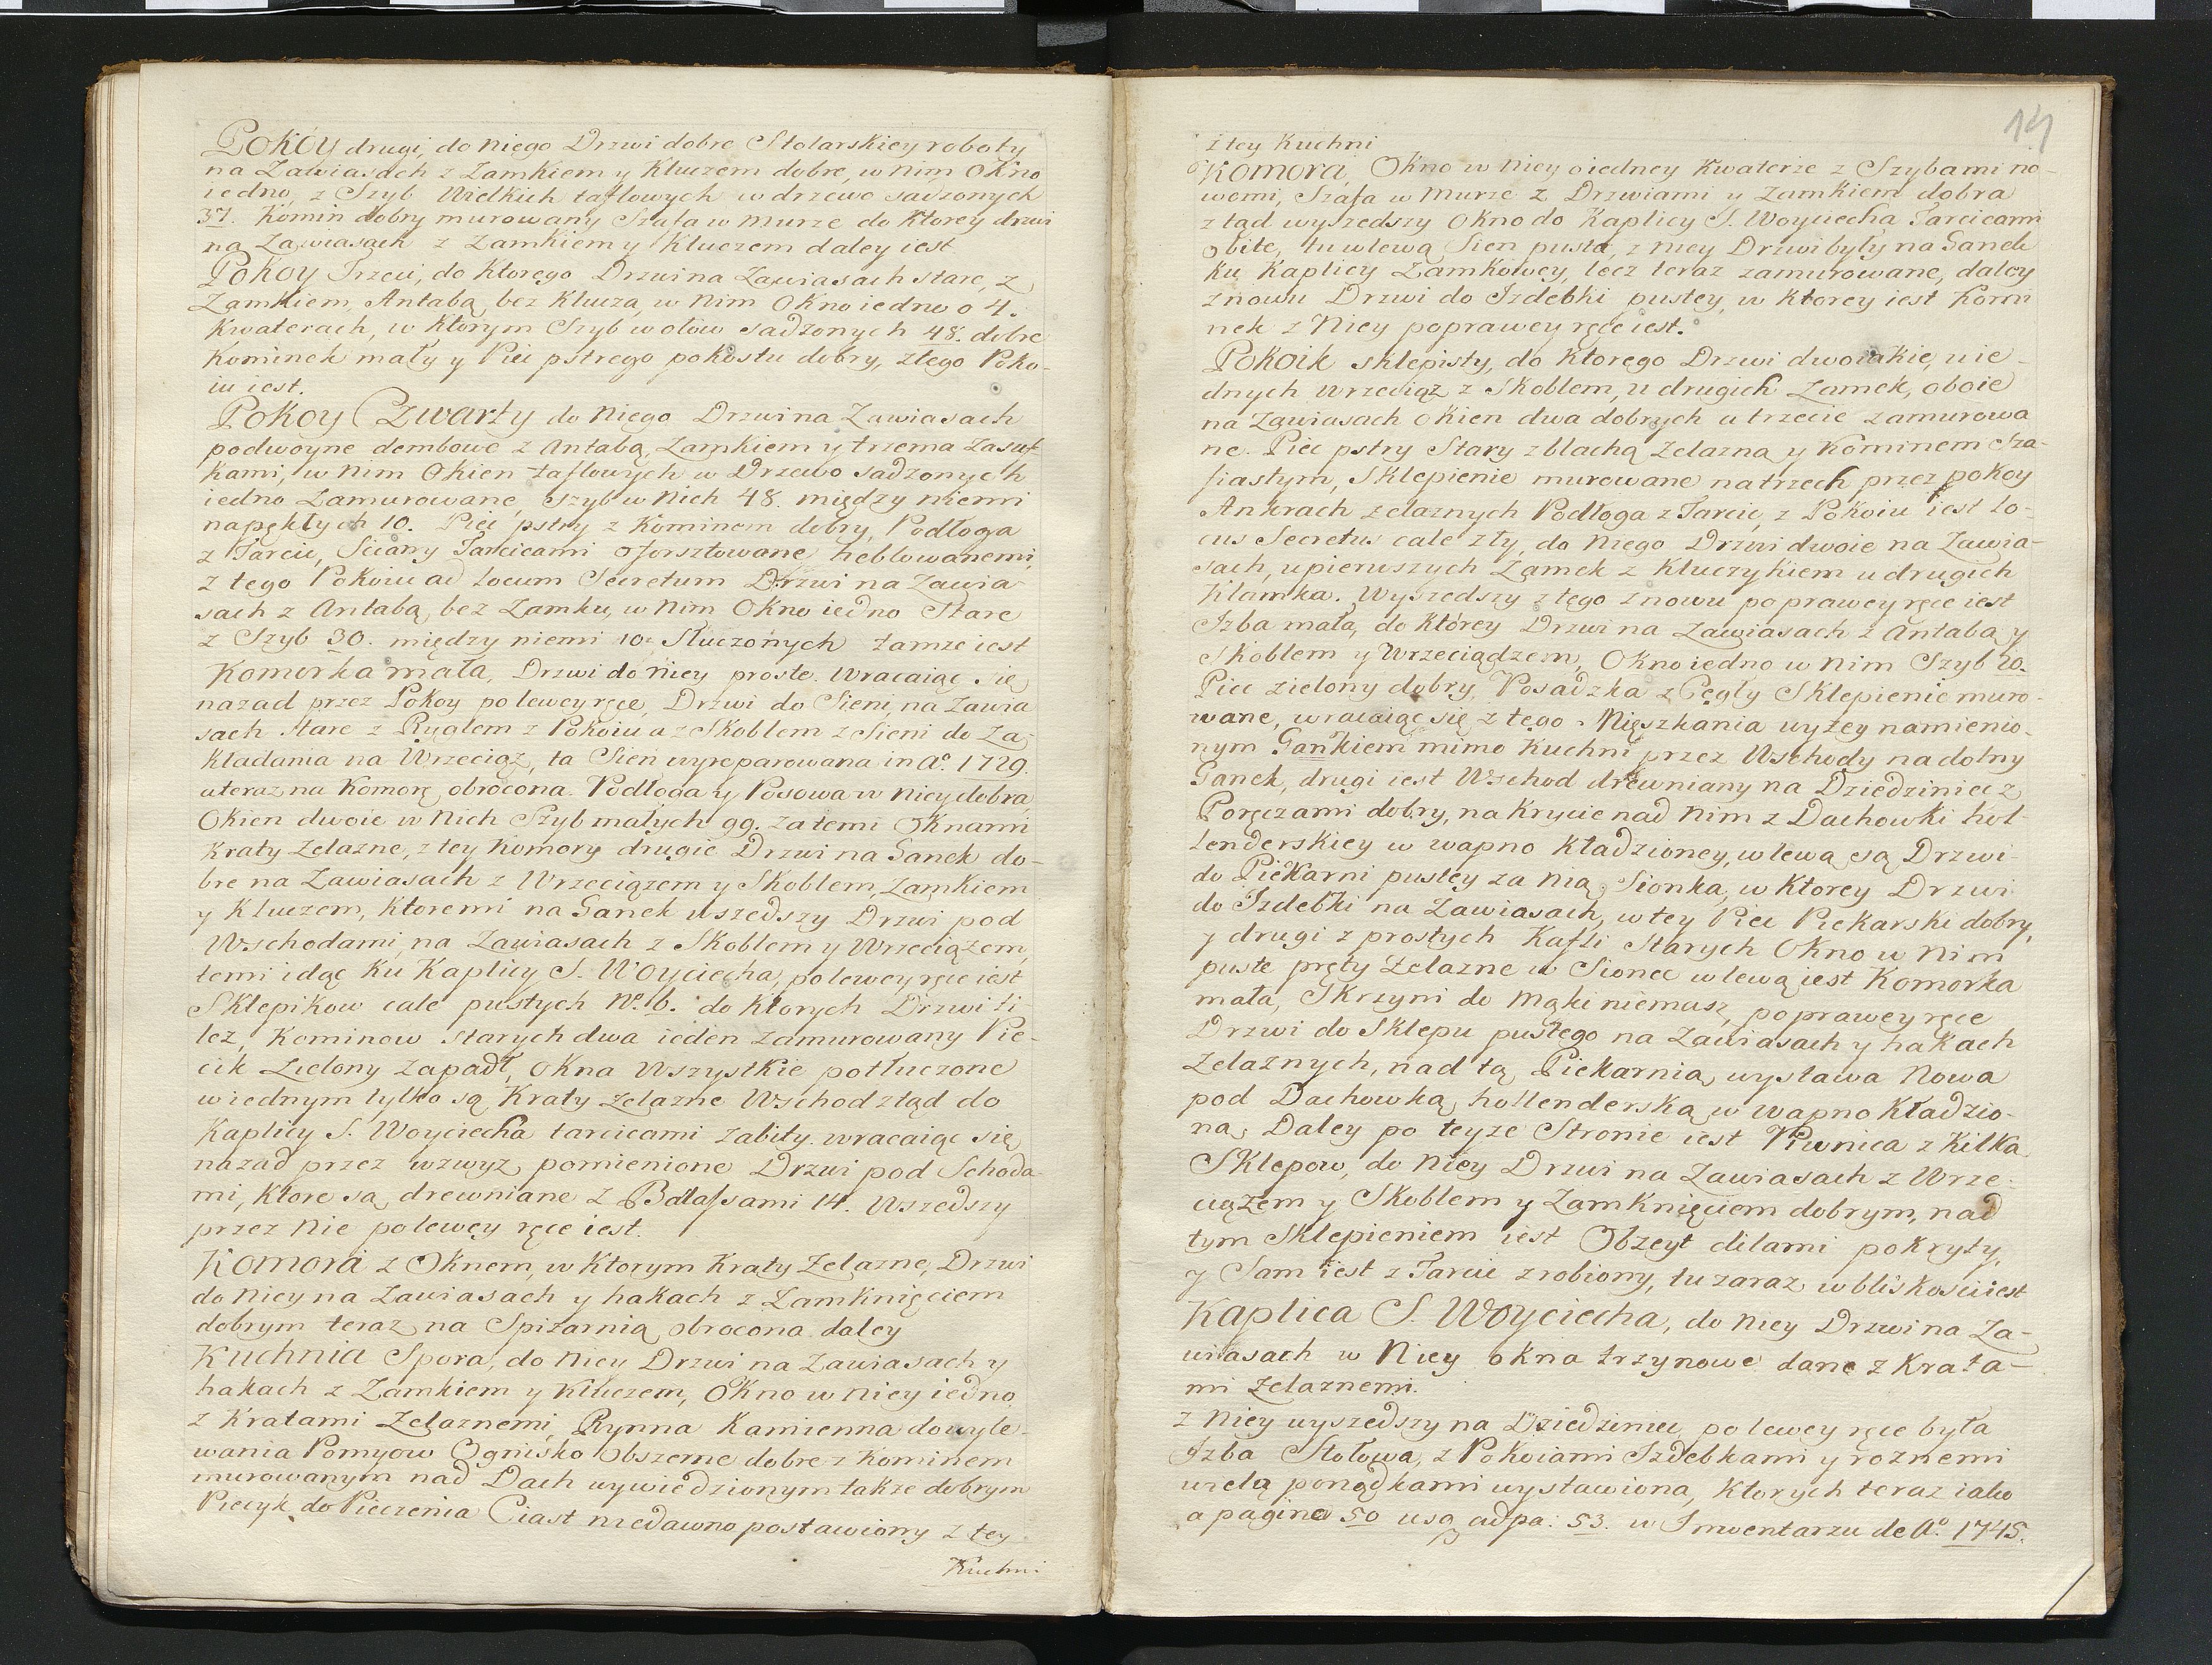 Pokoy drugi, do niego Drzwi dobre Stolarskiey roboty
na Zawiasach z Zamkiem y Kluczem dobre, w nim Okno
iedno, z Szyb Wielkich taflowych w drzewo sadzonych
37. Komin dobry murowany Szafa w murze do Ktorey drzwi
na Zawiasach z Zamkiem y Kluczem daley iest
Pokoy Trzeci, do Ktorego Drzwi na Zawiasach stare, z
Zamkiem, Antabą bez Klucza, w nim Okno iedno o 4.
Kwaterach, w Ktorym Szyb w ołow sadzonych 48. dobre
Kominek mały y Piec pstrego pokostu dobry, z tego Poko-
iu iest.
Pokoy Czwarty do niego Drzwi na Zawiasach
podwoyne dembowe z Antabą, Zamkiem y trzema Zasuf-
kami, w nim Okien taflowych w Drzewo sadzonych
iedno Zamurowane, szyb w nich 48. między niemi
napękłych 10. Piec pstry z Kominem dobry, Podłoga
z Tarcic, Sciany Tarcicami oforsztowane heblowanemi,
z tego Pokoiu ad Locum Secretum Drzwi na Zawia-
sach z Antabą, bez Zamku, w nim Okno iedno Stare
z Szyb 30. między niemi 10. Stuczonych tamze iest
Komorka mała, Drzwi do niey proste. Wracaiąc się
nazad przez Pokoy po lewey ręce, Drzwi do Sieni, na Zawia
sach stare z Ryglem z Pokoiu a z Skoblem z Sieni do Za-
kładania na Wrzeciąz, ta Sień wyreparowana in Ao. 1729.
a teraz na Komorę obrocona. Podłoga y Posowa w niey dobra
Okien dwoie w Nich Szyb małych 99. za temi Oknami
Kraty Zelazne, z tey Komory drugie Drzwi na Ganek do-
bre na Zawiasach z Wrzeciązem y Skoblem, Zamkiem
y Kluczem, Ktoremi na Ganek wszedszy Drzwi pod
Wschodami, na Zawiasach z Skoblem y Wrzeciązem,
temi idąc Ku Kaplicy S. Woyciecha, po lewey ręce iest
Sklepikow cale pustych No. 6. do Ktorych Drzwi ti
lez, Kominow starych dwa ieden zamurowany Pie-
cik Zielony Zapadł, Okna Wszystkie potłuczone
w iednym tylko są Kraty zelazne Wschod ztąd do
Kaplicy S. Woyciecha tarcicami zabity. wracaiąc się
nazad przez wzwyz pomienione Drzwi pod Schoda-
mi, Ktore są drewniane z Balassami 14. Wszedszy
przez Nie po lewey ręce iest.
Komora z Oknem, w Ktorym Kraty Zelazne, Drzwi
do niey na Zawiasach y hakach z Zamknięciem
dobrym teraz na Spizarnią obrocona. daley
Kuchnia Spora, do niey Drzwi na Zawiasach y
hakach z Zamkiem y Kluczem, Okno w niey iedno
z Kratami Zelaznemi, Rynna Kamienna do wyle-
wania Pomyow Ognisko Obszerne dobre z Kominem
murowanym nad Dach wywiedzionym takze dobrym
Piecyk do Pieczenia Ciast niedawno postawiony z tey
Kuchni
14
z tey Kuchni
Komora, Okno w niey o iedney Kwaterze z Szybami no-
wemi, Szafa w Murze z Drzwiami y Zamkiem dobra
z tąd wyszedszy Okno do Kaplicy S. Woyciecha Tarcicami
obite, tu w lewą Sien pusta, z niey Drzwi były na Ganek
ku Kaplicy Zamkowey, lecz teraz zamurowane, daley
znowu Drzwi do Izdebki pustey, w Ktorey iest Komi
nek z Niey po prawey ręce iest.
Pokoik sklepisty, do Ktorego Drzwi dwoiakie, u ie-
dnych Wrzeciąz z Skoblem, u drugich Zamek, oboie
na Zawiasach okien dwa dobrych a trzecie zamurowa
ne. Piec pstry Stary z blachą Zelazną y Kominem Sza-
fiastym, Sklepienie murowane na trzech przez pokoy
Ankrach zelaznych Podłoga z Tarcic, z Pokoiu iest Lo-
cus Secretus cale zły, do niego Drzwi dwoie na Zawia-
sach, u pierwszych Zamek z Kluczykiem u drugich
Klamka. Wyszedszy z tego znowu po prawey ręce iest
Izba mała, do Którey Drzwi na Zawiasach z Antabą y
Skoblem y Wrzeciądzem, Okno iedno w nim Szyb 20.
Piec zielony dobry, Posadzka z Cegły Sklepienie muro-
wane, wracaiąc się z tego Mięszkania wyzey namienio-
nym Gankiem mimo Kuchni przez Wschody na dolny
Ganek, drugi iest Wschod drewniany na Dziedziniec z
Poręczami dobry, nakrycie nad nim z Dachowki hol-
lenderskiey w wapno kładzioney, w lewą są Drzwi
do Piekarni pustey za nią Sionka, w Ktorey Drzwi
do Izdebki na Zawiasach, w tey Piec Piekarski dobry,
y drugi z prostych Kafli Starych Okno w Nim
puste pręty Zelazne w Sionce w lewą iest Komorka
mała, Skrzyni do mąki niemasz, po prawey ręce
Drzwi do Sklepu pustego na Zawiasach y hakach
Zelaznych, nad tą Piekarnią, wystawa Nowa
pod Dachowką hollenderską w wapno Kładzio-
ną. Daley po teyze Stronie iest Piwnica z Kilką
Sklepow, do niey Drzwi na Zawiasach z Wrze-
ciązem y Skoblem y Zamknięciem dobrym, nad
tym Sklepieniem iest Obzeyt dilami pokryty,
y Sam iest z Tarcic zrobiony, tu zaraz w bliskosci iest
Kaplica S. Woyciecha, do niey Drzwi na Za-
wiasach w Niey okna trzy nowe dane z Krata-
mi Zelaznemi.
z Niey wyszedszy na Dziedziniec po lewey ręce była
Izba Stołowa, z Pokoiami Izdebkami y roznemi
wielą porządkami wystawiona, Ktorych teraz iako
a pagina 50 usq adpa: 53. w Inwentarzu de Ao. 1745.